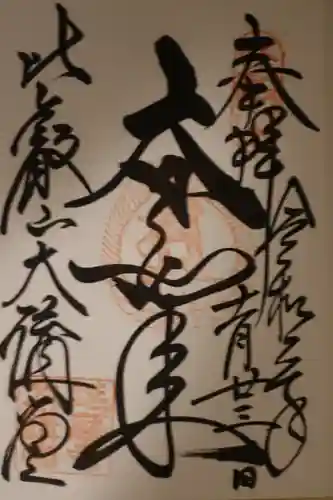 奉拝 令和 年
十一月廿三日
大日如来
比叡山大講堂